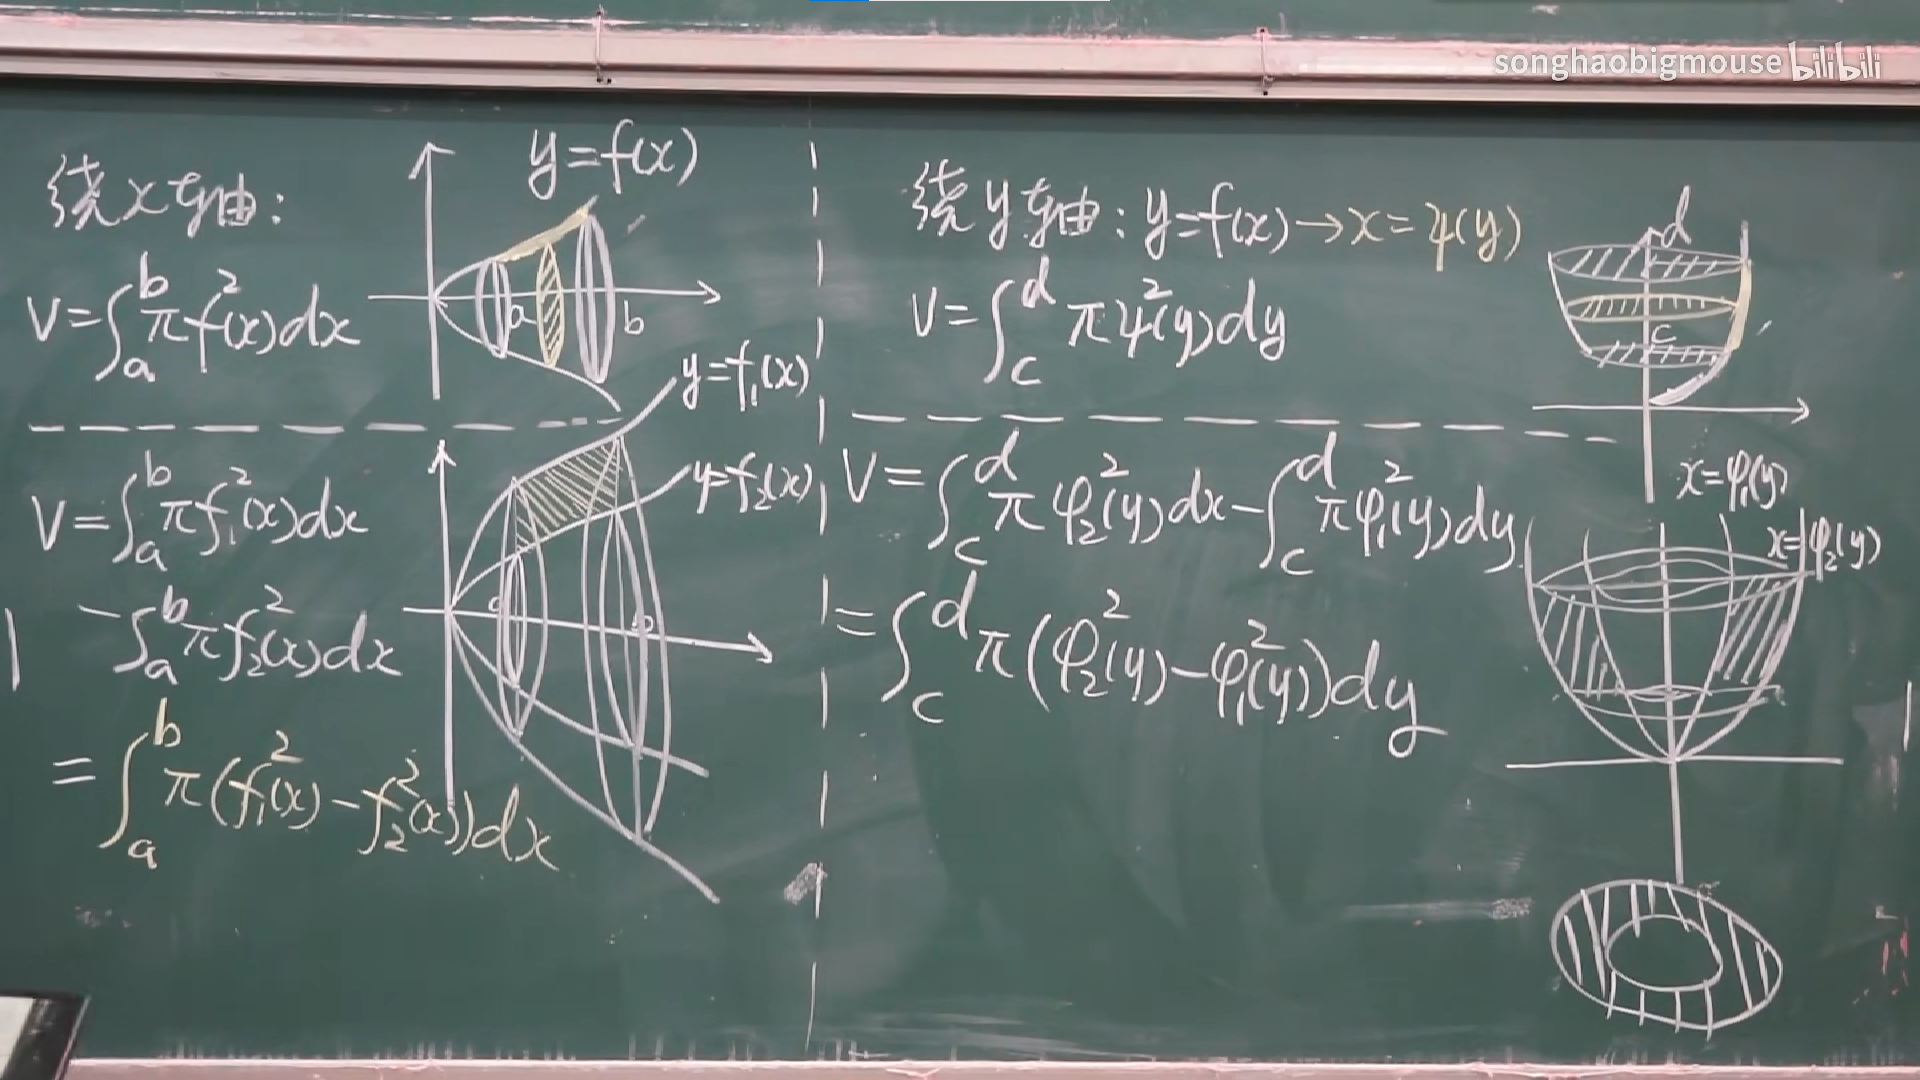 songhaobigmouse bilibili
绕x轴:
y=f(x)
V=∫_a^b πf²(x)dx
a
b
y=f₁(x)
y=f₂(x)
V=∫_a^b πf₁²(x)dx
-∫_a^b πf₂²(x)dx
=∫_a^b π(f₁²(x)-f₂²(x))dx
a
b
绕y轴: y=f(x)→x=ψ(y)
V=∫_c^d πψ²(y)dy
d
c
V=∫_c^d πφ₂²(y)dx-∫_c^d πφ₁²(y)dy
=∫_c^d π(φ₂²(y)-φ₁²(y))dy
x=φ₁(y)
x=φ₂(y)